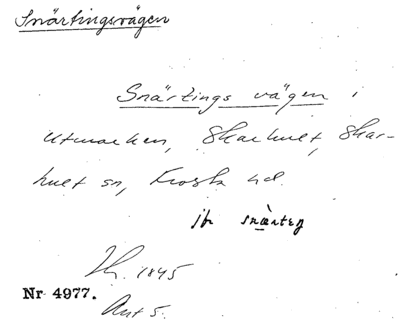 Snärtingsvägen
Snärtings vägen i
utmarken, Skarhult, Skar-
hult sn, Frosta hd.
jfr snärteŋ
Lh. 1845
Nr 4977.
Akt 5.